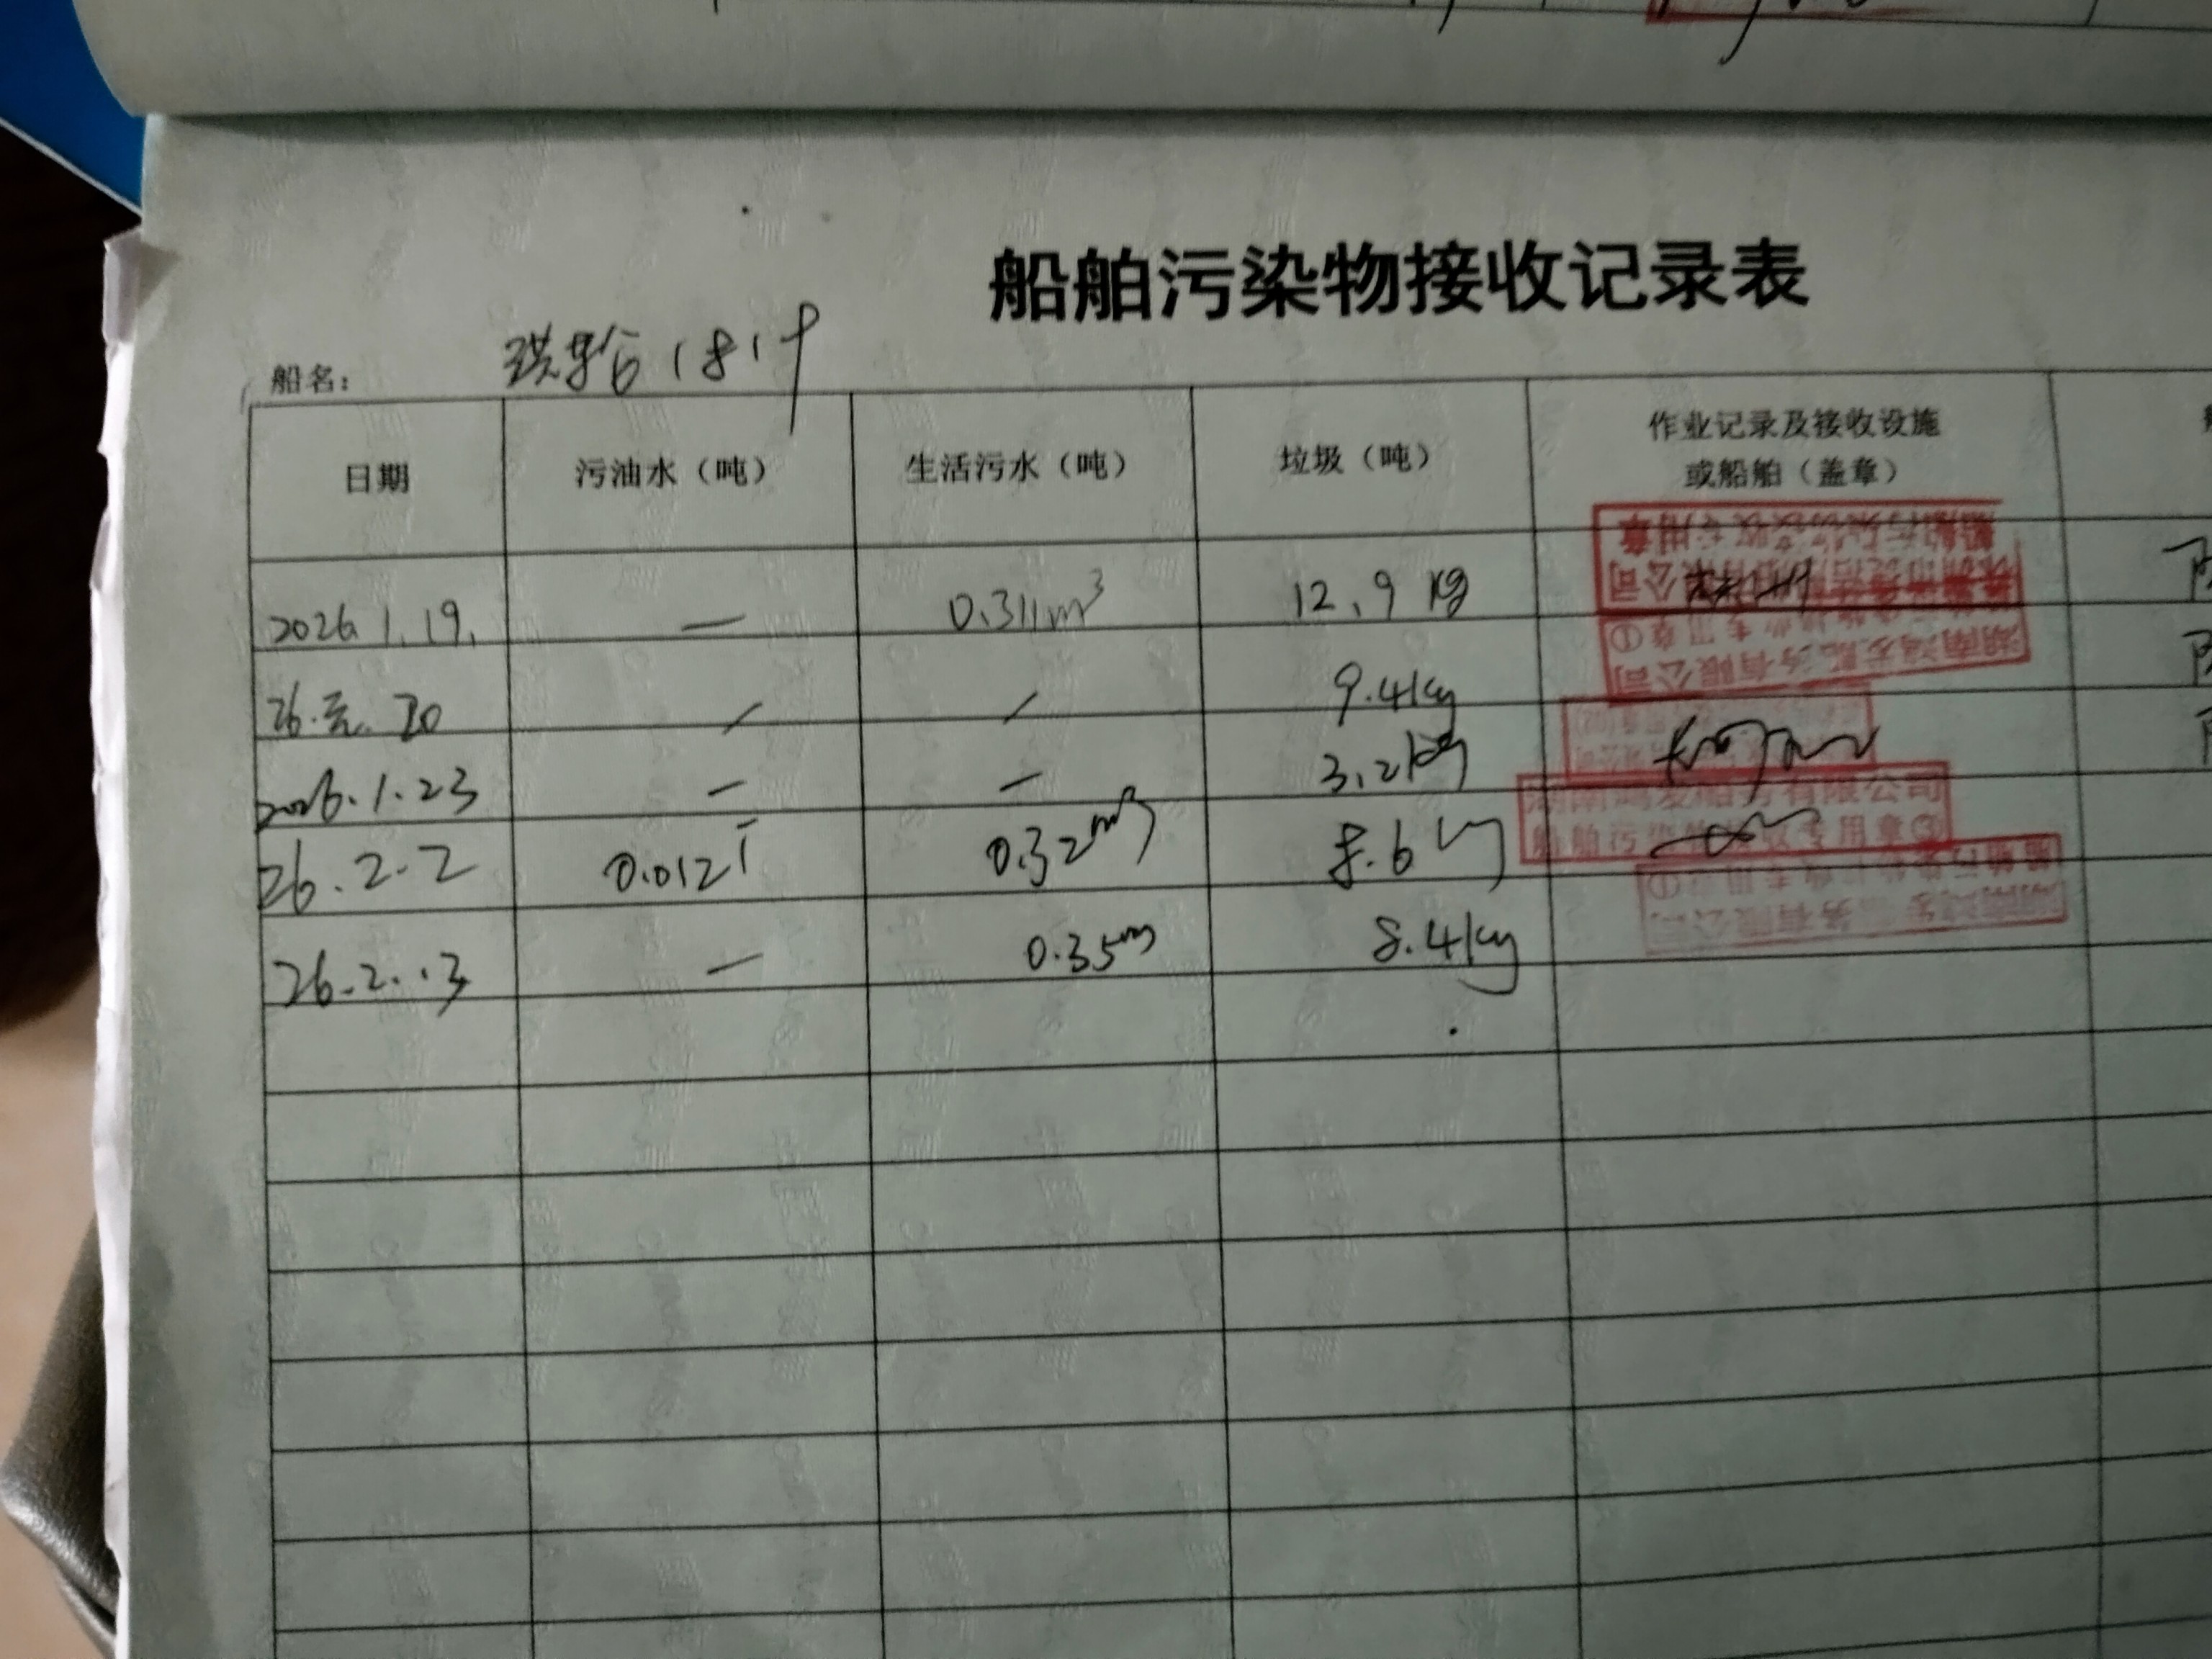 船舶污染物接收记录表
船名： 1819
日期 污油水（吨） 生活污水（吨） 垃圾（吨） 作业记录及接收设施
或船舶（盖章）
2026.1.19. — 0.311m³ 12.9 kg
26.元.20 / / 9.4kg
2026.1.23 — — 3.2kg
26.2.2 0.012T 0.32m³ 8.6
26.2.13 — 0.35m 8.4kg
船舶污染物接收专用章
有限公司
湖南鸿发船务有限公司
专用章①
湖南鸿发船务有限公司
船舶污染物接收专用章③